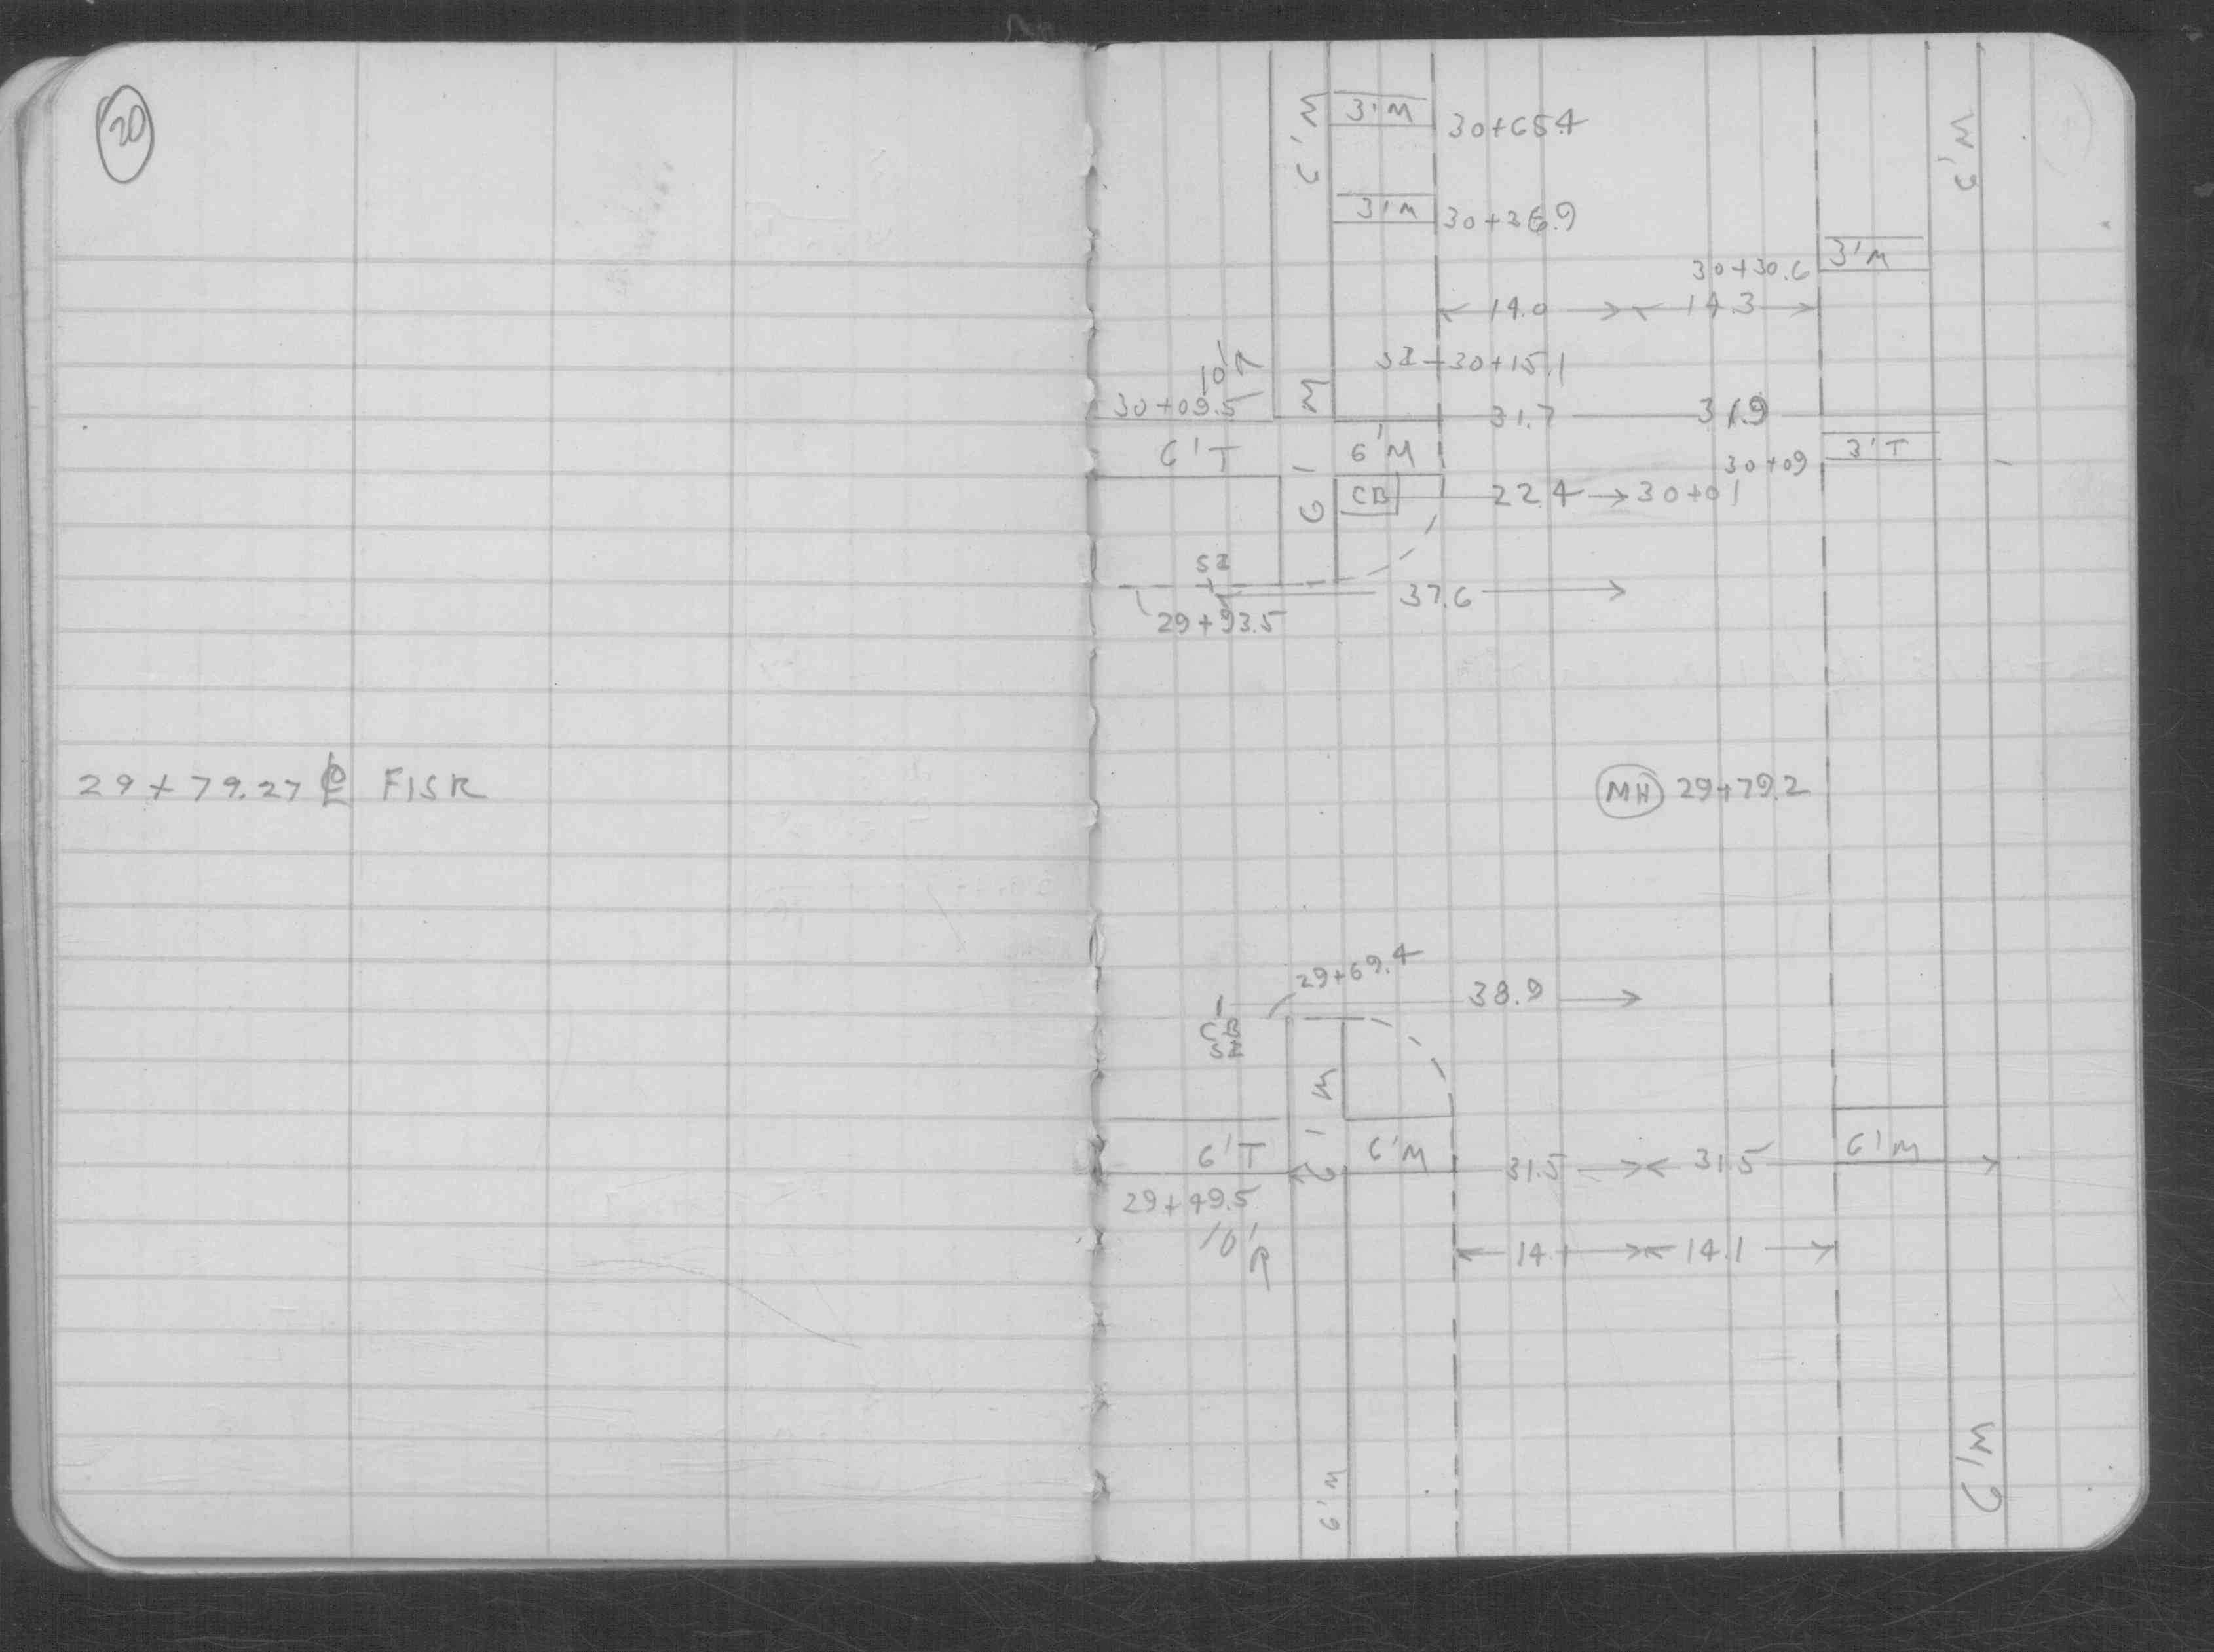 20
29+79.27 ℄ FISK
6'M
3'M
30+65.4
6'M
3'M
30+36.9
3'M
30+30.6
14.0
14.3
SI
30+15.1
10'
30+09.5
31.7
31.9
6'T
6'M
6'M
3'T
30+09
CB
22.4
30+01
SI
37.6
29+93.5
MH 29+79.2
29+69.4
38.9
CB
SI
6'T
6'M
6'M
31.5
31.5
6'M
29+49.5
10'
14.1
14.1
6'M
6'M